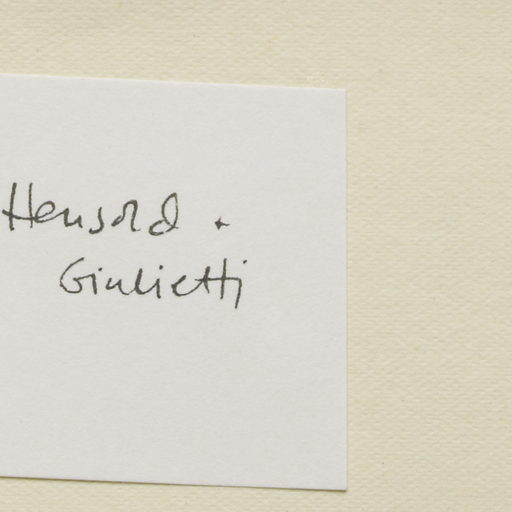 Hensold +
Giulietti